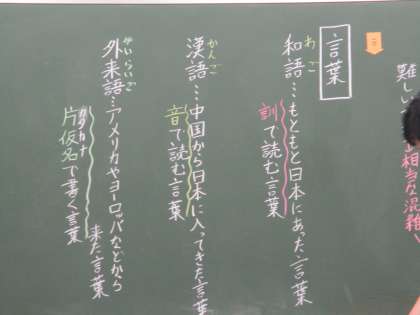 難しい
相当な混雑
言葉
わご
和語…もともと日本にあった言葉
訓で読む言葉
かんご
漢語…中国から日本に入ってきた言葉
音で読む言葉
がいらいご
外来語…アメリカやヨーロッパなどから
来た言葉
カタカナ
片仮名で書く言葉